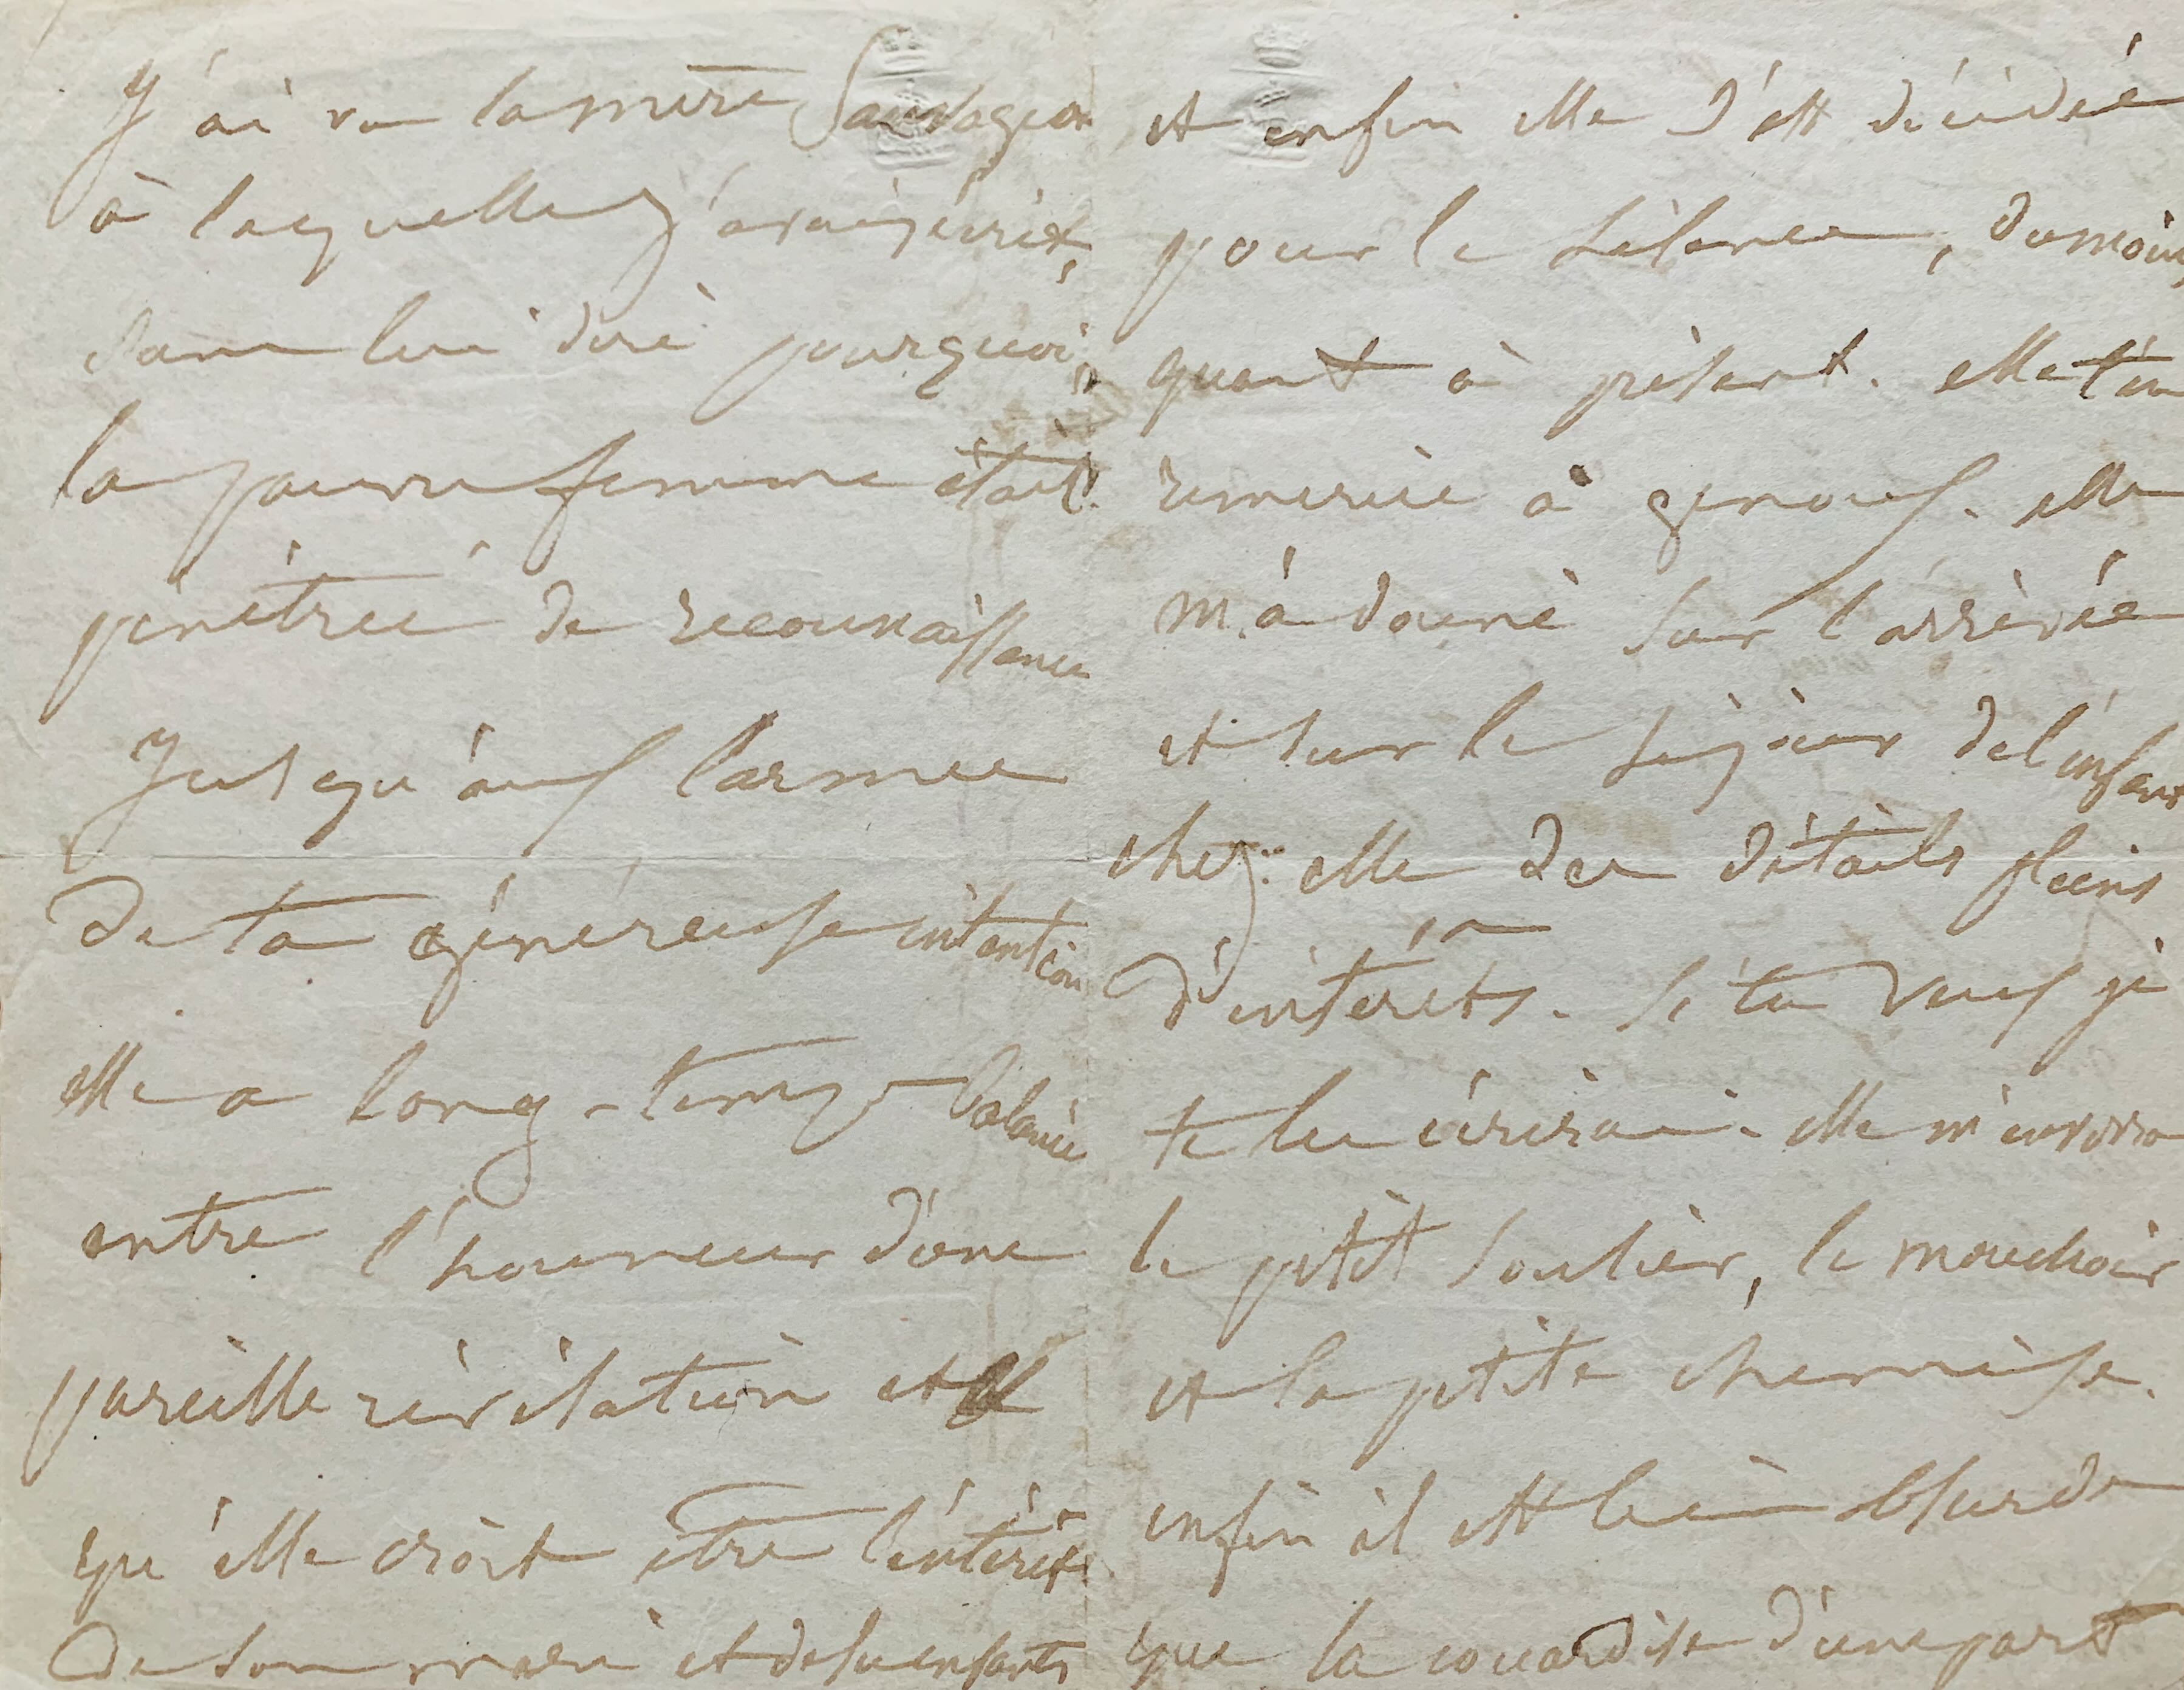 J'ai vu la mère Sauvageon
à laquelle j'avais écrit,
sans lui dire pourquoi,
la pauvre femme était
pénétrée de reconnaissance
jusqu'aux larmes
de ta généreuse intention
elle a long-temps balancé
entre l'honneur d'une
pareille révélation et
qu'elle croit être l'intérêt
de son mari et de ses enfants
et enfin elle s'est décidée
pour le silence, du moins
quant à présent. elle t'en
remercie à genoux. elle
m'a donné sur l'arrivée
et sur le séjour de l'enfant
chez elle des détails pleins
d'intérêts. si tu veux je
te les écrirai. elle m'enverra
le petit soulier, le mouchoir
et la petite chemise.
enfin il est bien absurde
que la couardise d'une part